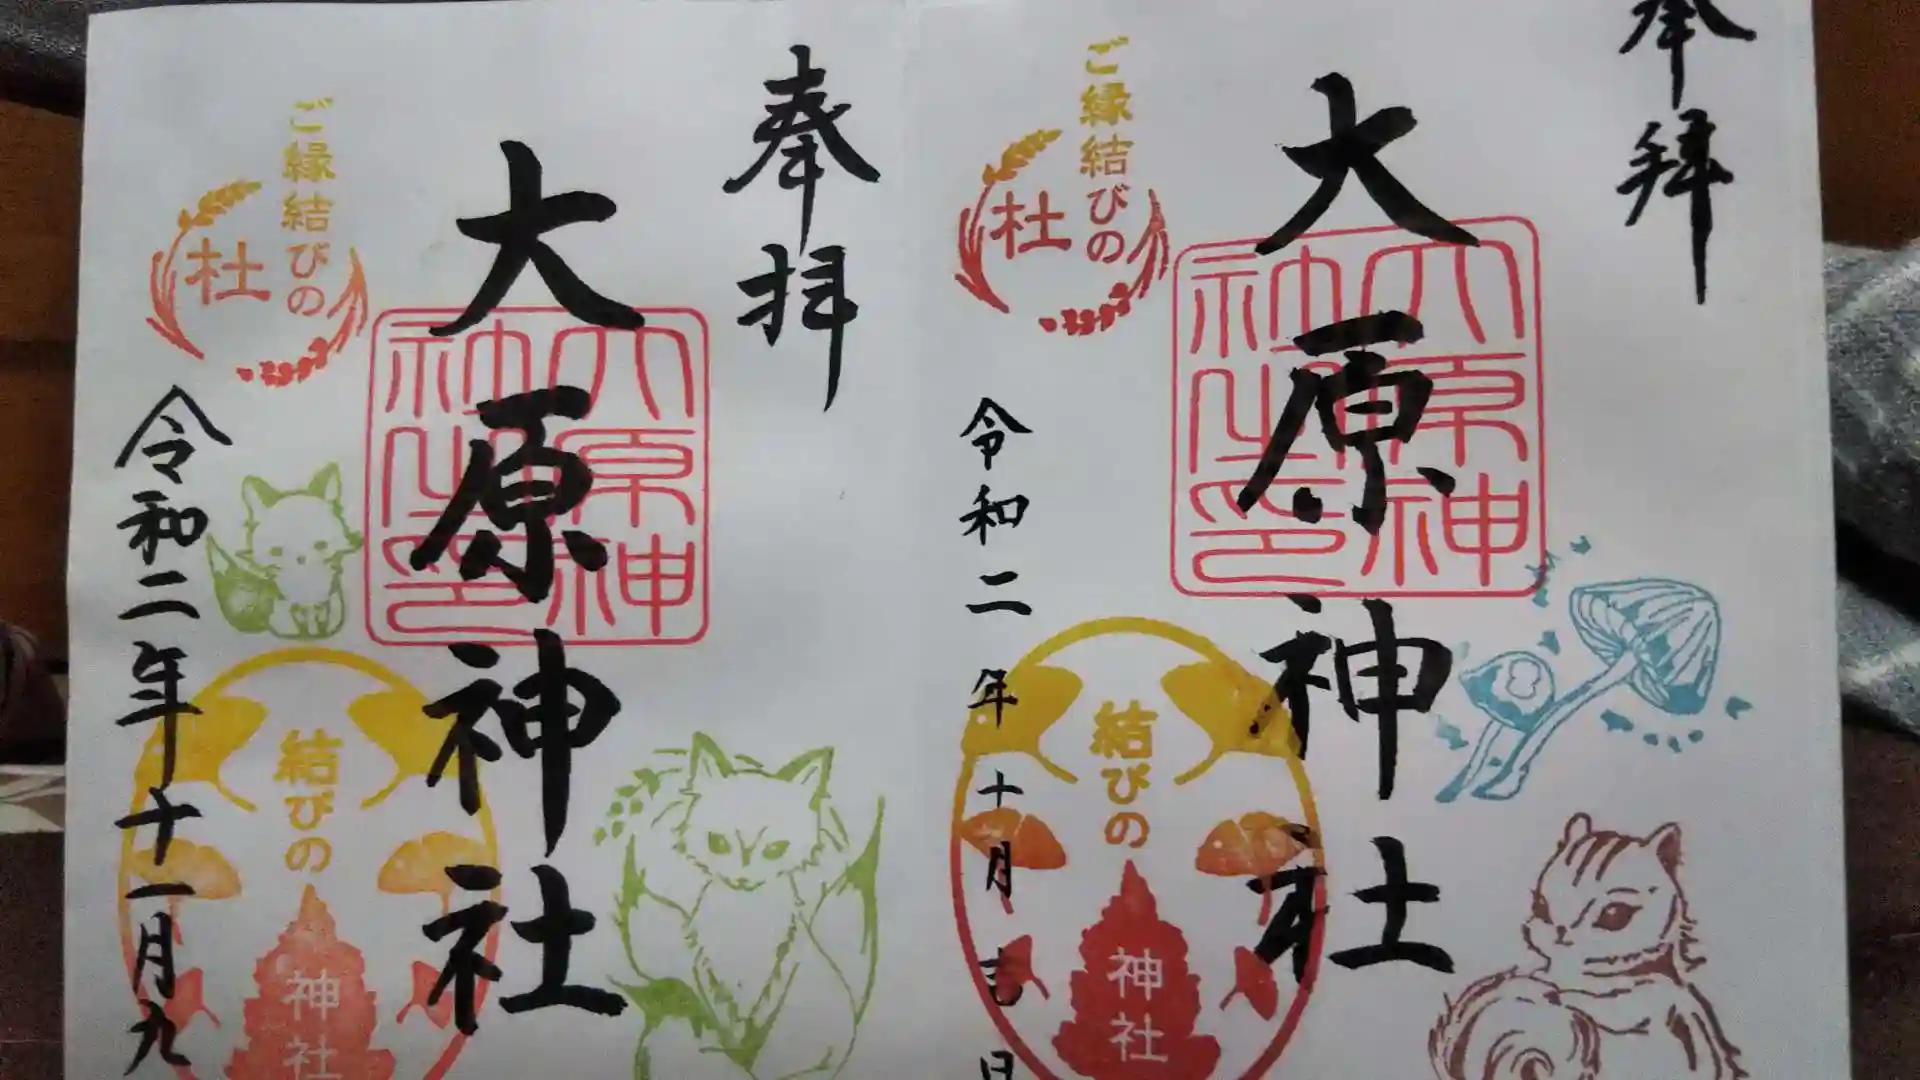 奉拝
大原神社
大原神社之印
ご縁結びの
杜
令和二年十月吉日
結びの
神社
奉拝
大原神社
大原神社之印
ご縁結びの
杜
令和二年十一月九
結びの
神社